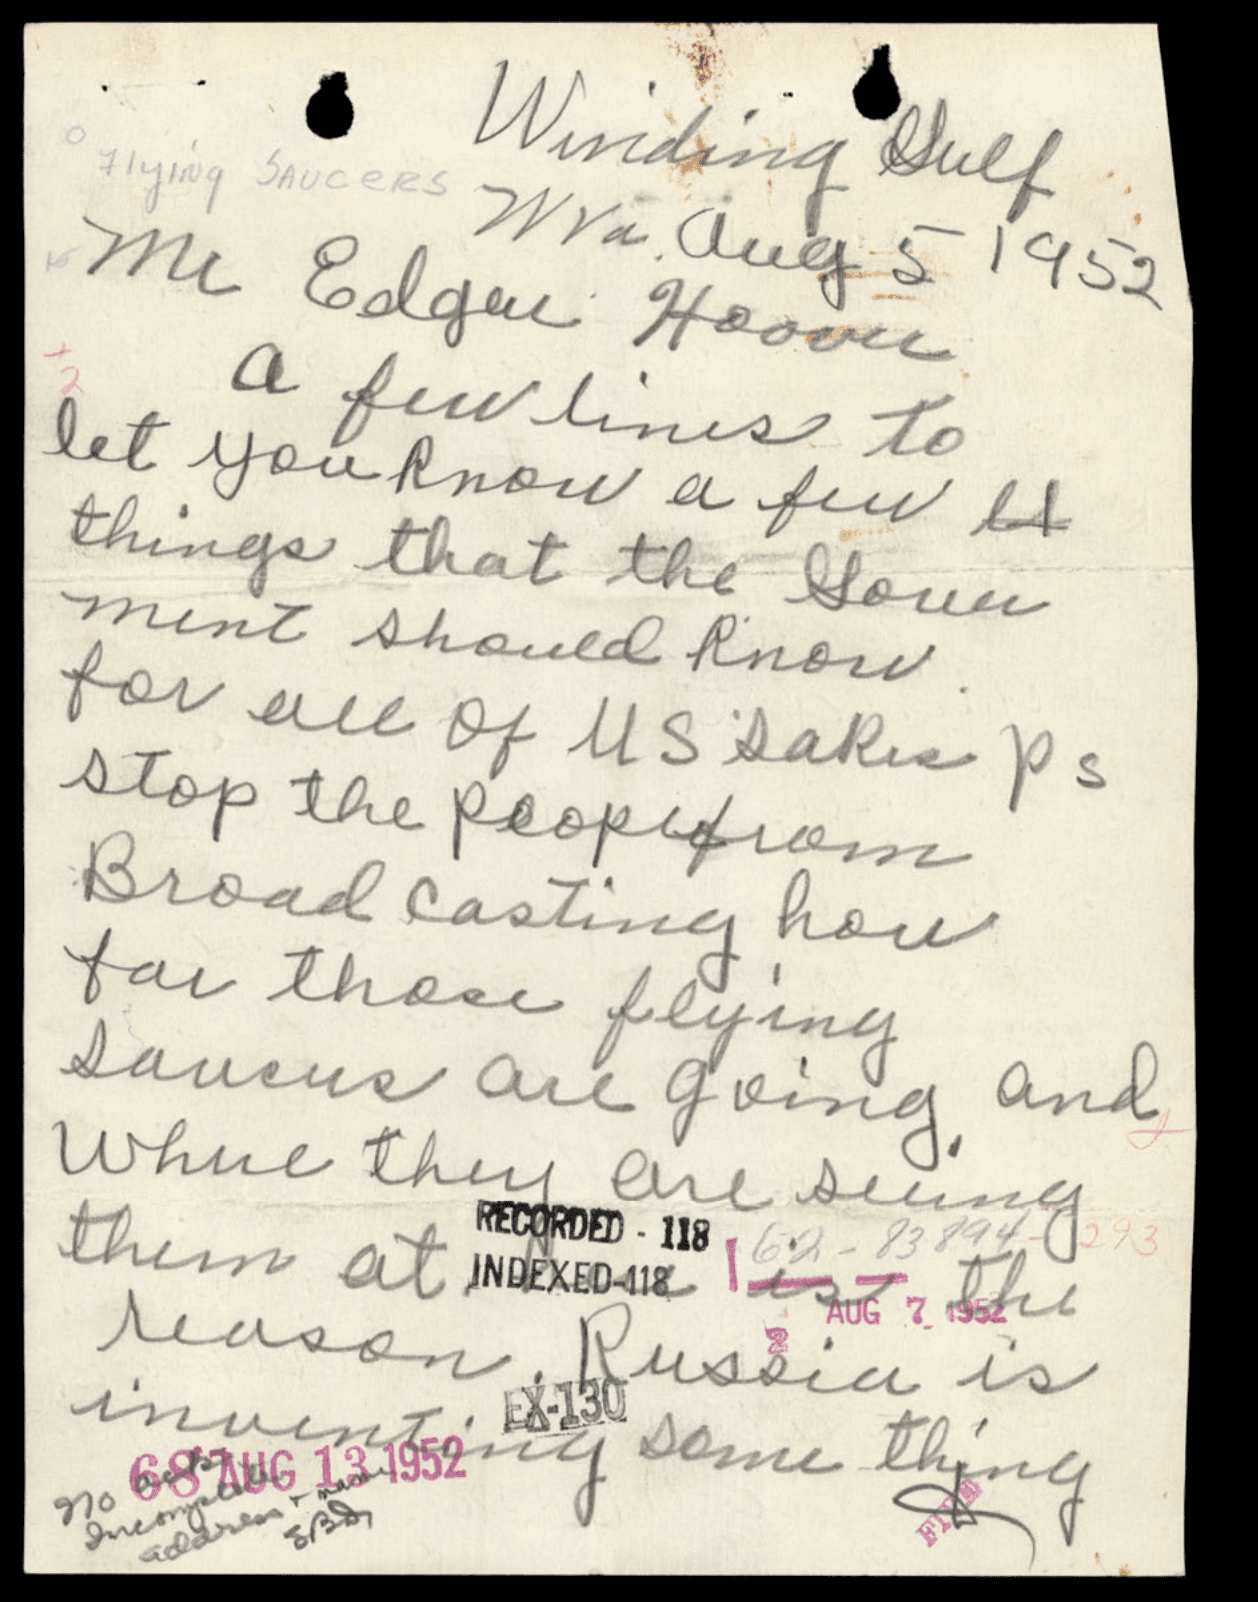 Winding Gulf
Flying SAUCERS
W Va. Aug 5 1952
Mr Edgar Hoover
+
2
A few lines to
let you know a few
things that the Gover
ment should know.
for all of US sakes Ps
stop the people from
Broad casting how
far those flying
saucers are going, and
where they are seeing
them at is the
RECORDED - 118
INDEXED-118
62-83894-293
AUG 7 1952
reason. Russia is
EX-130
inventing some thing
68 AUG 13 1952
No ack
Incomplete
address + name